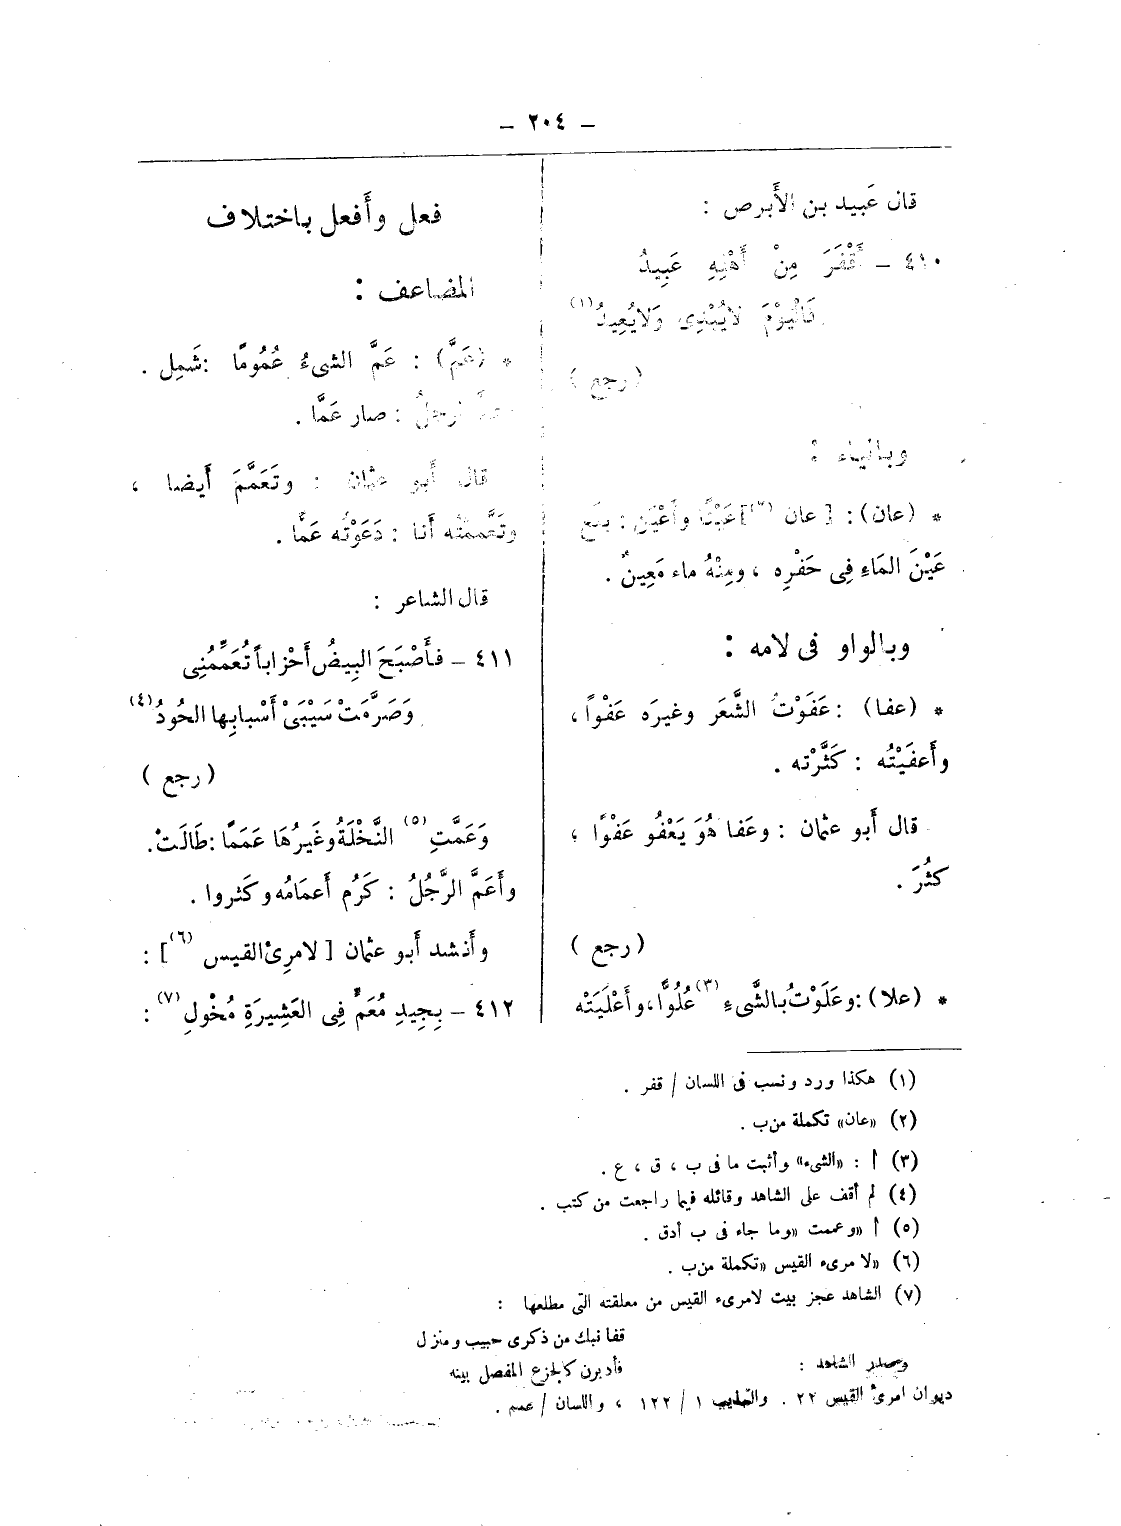 – ٢٠٤ –
قال عَبيد بن الأَبرص :
٤١٠ – أَقْفَرَ مِنْ أَهْلِهِ عَبِيدُ
فَالْيَوْمَ لايُبْدِى وَلايُعِيدُ(١)
( رجع )
وبالياء :
* (عان) : [ عان (٢)] عَيْنًا وأَعْيَن : بلغ
عَيْنَ المَاءِ فِى حَفْرِه ، ومِنْهُ ماء مَعِينٌ .
وبالواو فى لامه :
* (عفا) : عَفَوْتُ الشَّعَر وغيرَه عَفْواً ،
وأَعفَيْتُه : كَثَّرْته .
قال أَبو عثمان : وعَفا هُوَ يَعْفُو عَفْوًا ،
كثُرَ .
( رجع )
* (علا) : وعَلَوْتُ بالشَّىءِ (٣) عُلُوًّا ، وأَعْلَيَتْه
فعل وأَفعل باختلاف
المضاعف :
* (عَمَّ) : عَمَّ الشىءُ عُمُومًا : شَمِل .
الرجلُ : صار عَمًّا .
قال أَبو عثمان : وتَعَمَّمَ أَيضا ،
وتَعَّممتُه أَنا : دَعَوْتُه عَمًّا .
قال الشاعر :
٤١١ – فأَصْبَحَ البِيضُ أَحْزاباً تُعَمِّمُنِى
وَصَرَّمَتْ سَيْبَىْ أَسْبابِها الخُودُ(٤)
( رجع )
وَعَمَّتِ(٥) النَّخْلَةُ وغَيرُهَا عَمَمًا : طَالَتْ .
وأَعَمَّ الرَّجُلُ : كَرُم أَعمَامُه وكَثروا .
وأَنشد أَبو عثمان [ لامرِئ القيس (٦) ] :
٤١٢ – بِجِيدِ مُعَمٍّ فِى العَشِيرَةِ مُخْولِ (٧) :
(١) هكذا ورد ونسب فى اللسان / قفر .
(٢) «عان» تكملة من ب .
(٣) أ : «الشىء» وأثبت ما فى ب ، ق ، ع .
(٤) لم أقف على الشاهد وقائله فيما راجعت من كتب .
(٥) أ «وعممت «وما جاء فى ب أدق .
(٦) «لا مرىء القيس «تكملة من ب .
(٧) الشاهد عجز بيت لامرىء القيس من معلقته التى مطلعها :
قفا نبك من ذكرى حبيب ومنزل
وصدر الشاهد : فأدبرن كالجزع المفصل بينه
ديوان امرئ القيس ٢٢ . والتهذيب ١ / ١٢٢ ، واللسان / عمم .